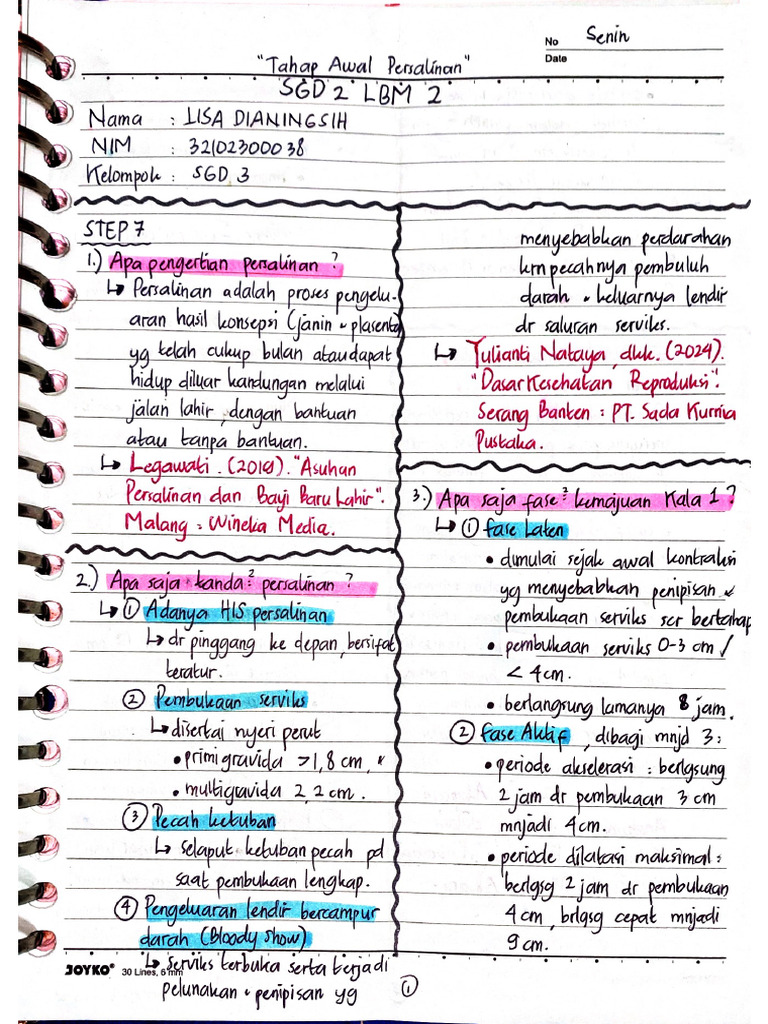 No Senin
Date
"Tahap Awal Persalinan"
SGD 2 LBM 2
Nama : LISA DIANINGSIH
NIM : 32102300038
Kelompok : SGD 3
STEP 7
1.) Apa pengertian persalinan ?
↳ Persalinan adalah proses pengelu-
aran hasil konsepsi (janin & plasenta)
yg telah cukup bulan atau dapat
hidup diluar kandungan melalui
jalan lahir, dengan bantuan
atau tanpa bantuan.
↳ Legawati. (2019). "Asuhan
Persalinan dan Bayi Baru Lahir".
Malang : Wineka Media.
2.) Apa saja tanda² persalinan ?
↳ ① Adanya HIS persalinan
↳ dr pinggang ke depan, bersifat
teratur.
② Pembukaan serviks
↳ disertai nyeri perut
• primigravida > 1,8 cm,
• multigravida 2,2 cm.
③ Pecah ketuban
↳ selaput ketuban pecah pd
saat pembukaan lengkap.
④ Pengeluaran lendir bercampur
darah (Bloody Show)
↳ serviks terbuka serta terjadi
pelunakan & penipisan yg
menyebabkan perdarahan
krn pecahnya pembuluh
darah & keluarnya lendir
dr saluran serviks.
↳ Yulianti Nataya, dkk. (2024).
"Dasar Kesehatan Reproduksi".
Serang Banten : PT. Sada Kurnia
Pustaka.
3.) Apa saja fase² kemajuan Kala 1 ?
↳ ① fase Laten
• dimulai sejak awal kontraksi
yg menyebabkan penipisan &
pembukaan serviks scr bertahap
• pembukaan serviks 0-3 cm /
< 4cm.
• berlangsung lamanya 8 jam.
② fase Aktif, dibagi mnjd 3 :
• periode akselerasi : berlgsung
2 jam dr pembukaan 3 cm
mnjadi 4cm.
• periode dilatasi maksimal :
berlgsg 2 jam dr pembukaan
4 cm, brlgsg cepat mnjadi
9 cm.
JOYKO® 30 Lines, 6 mm
①